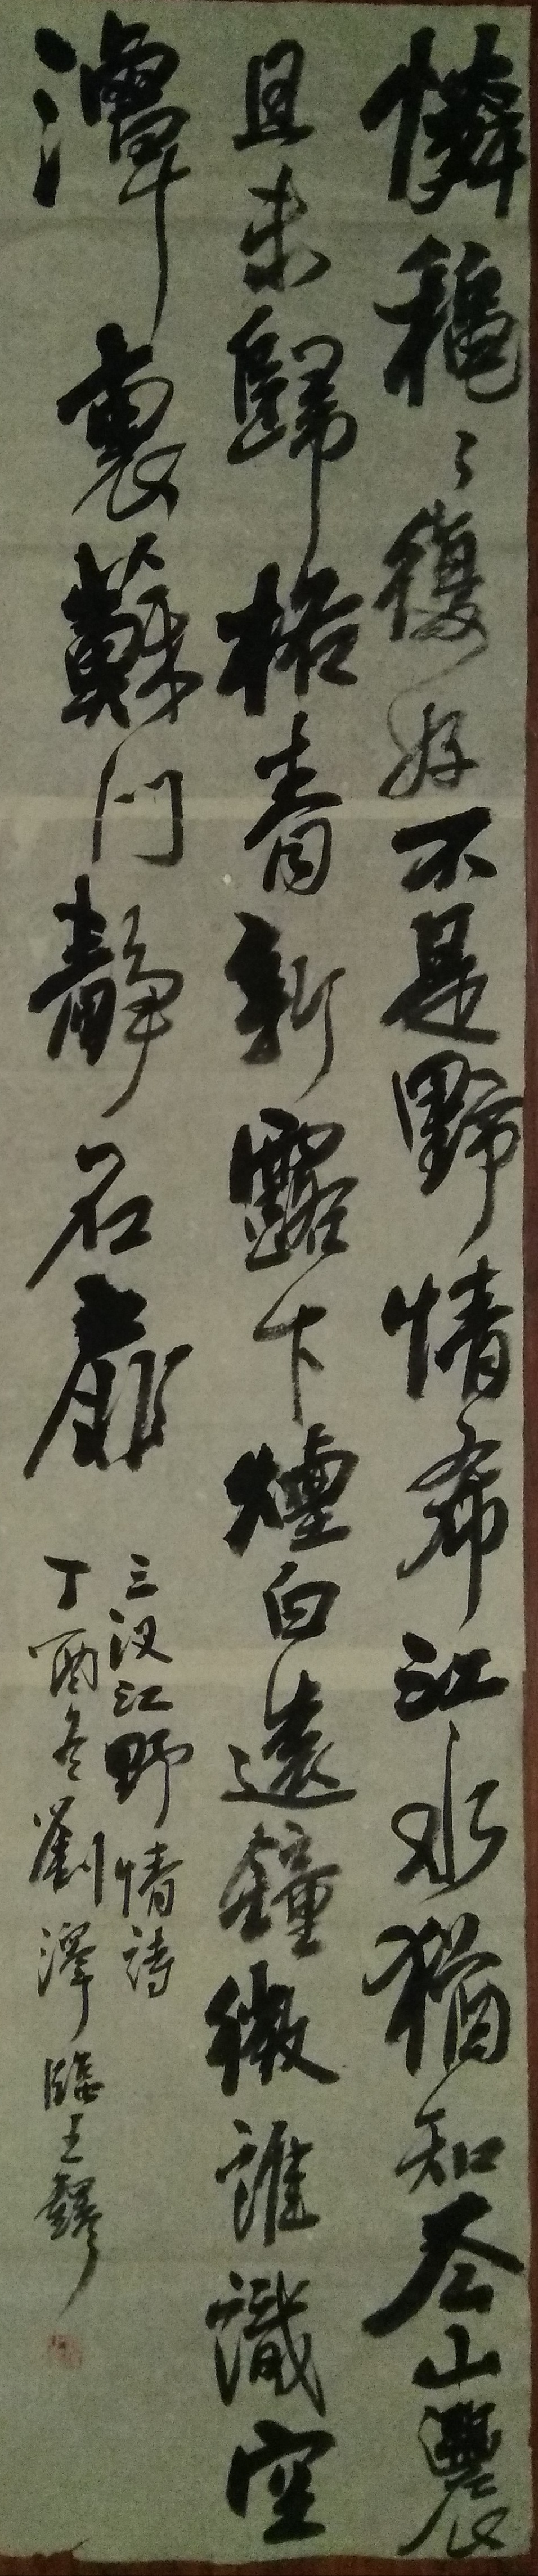 憐穐〻復好不是野情希江水猶知冬山農
且未歸格青新露下煙白遠鐘微誰識空
潭裏蘇門靜石扉
三汊江野情詩
丁酉冬劉澤臨王鐸